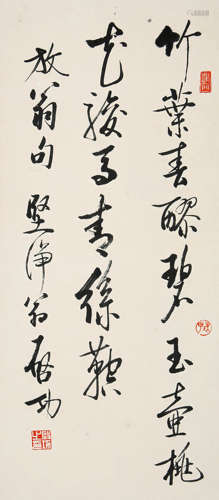 竹葉春醪碧玉壺桃
花駿馬青絲鞚
放翁句堅淨翁啟功